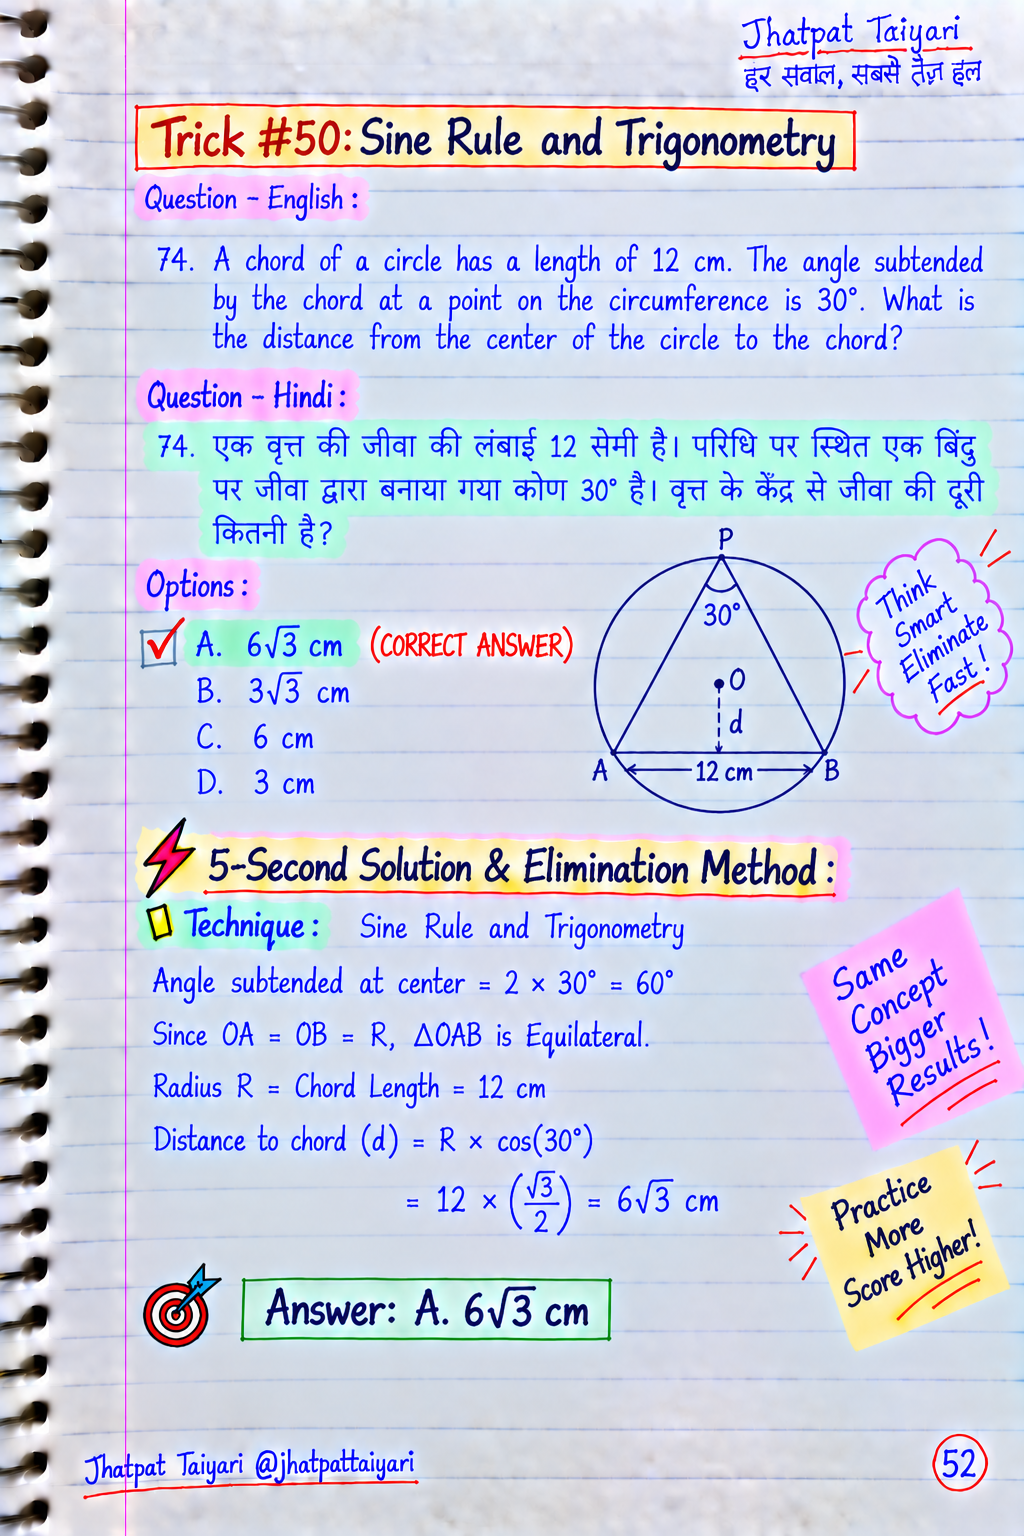 Jhatpat Taiyari
हर सवाल, सबसे तेज़ हल
Trick #50: Sine Rule and Trigonometry
Question – English :
74. A chord of a circle has a length of 12 cm. The angle subtended
by the chord at a point on the circumference is 30°. What is
the distance from the center of the circle to the chord?
Question – Hindi :
74. एक वृत्त की जीवा की लंबाई 12 सेमी है। परिधि पर स्थित एक बिंदु
पर जीवा द्वारा बनाया गया कोण 30° है। वृत्त के केंद्र से जीवा की दूरी
कितनी है?
Options :
A. 6√3 cm (CORRECT ANSWER)
B. 3√3 cm
C. 6 cm
D. 3 cm
P
30°
O
d
A
12 cm
B
Think
Smart
Eliminate
Fast!
5-Second Solution & Elimination Method :
Technique : Sine Rule and Trigonometry
Angle subtended at center = 2 × 30° = 60°
Since OA = OB = R, △OAB is Equilateral.
Radius R = Chord Length = 12 cm
Distance to chord (d) = R × cos(30°)
= 12 × (√3/2) = 6√3 cm
Same
Concept
Bigger
Results!
Practice
More
Score Higher!
Answer: A. 6√3 cm
Jhatpat Taiyari @jhatpattaiyari
52